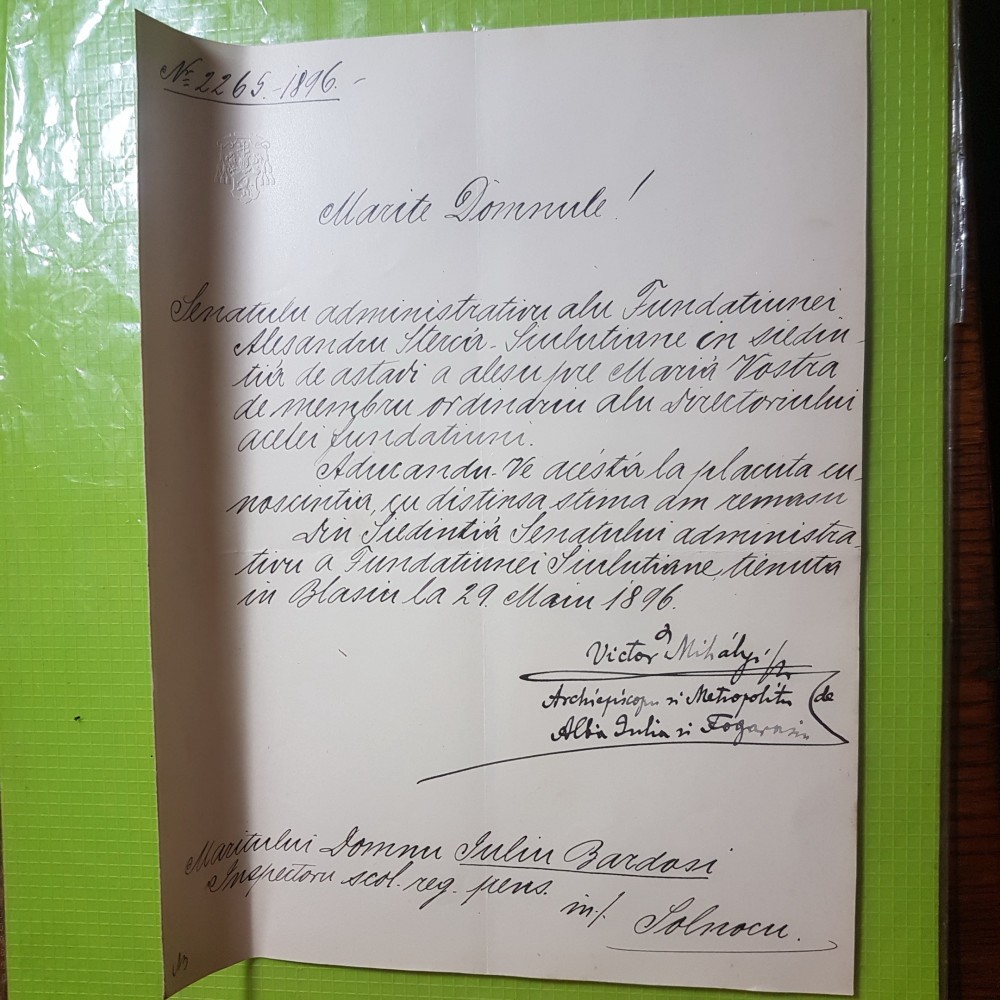 Nr. 2265.-1896.-
Marite Domnule!
Senatulu administrativu alu Fundatiunei
Alesandru Stercá-Siulutiane in siedin-
tiá de astadi a alesu pre Mariá Vostra
de membru ordinariu alu Directoriului
acelei fundatiuni.
Aducandu-Ve acéstá la placuta cu-
noscintia, cu distinsa stima am remasu
Din Siedintiá Senatului administra-
tivu a Fundatiunei Siulutiane, tienuta
in Blasiu la 29. Maiu 1896.
Victor Mihályi
Archiepiscopu si Metropolitu de
Alba Iulia si Fogarasiu
Maritului Domnu Iuliu Bardosi
Inspectoru scol. reg. pens.
in
Solnocu.